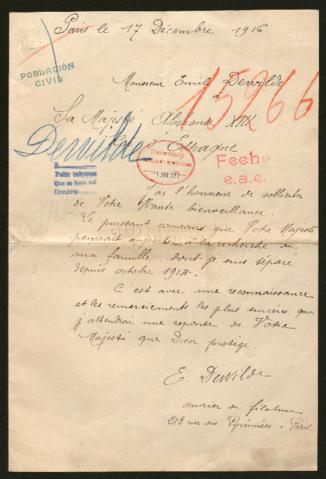 Paris le 17 Décembre 1916.
POBLACIÓN
CIVIL
Monsieur Emile Dewilde
15266
Sa Majesté Alphonse XIII
Roi d'Espagne
Dewilde
Fecho
e.a.c.
J'ai l'honneur de solliciter
de Votre Haute bienveillance
Le puissant concours que Votre Majesté
pourrait apporter à la recherche de
ma famille dont je suis séparé
depuis octobre 1914.
C'est avec une reconnaissance
et les remerciements les plus sincères que
j'attendrai une reponse de Votre
Majesté que Dieu protège.
E. Dewilde
ouvrier de filature
213 rue des Pyrénées - Paris